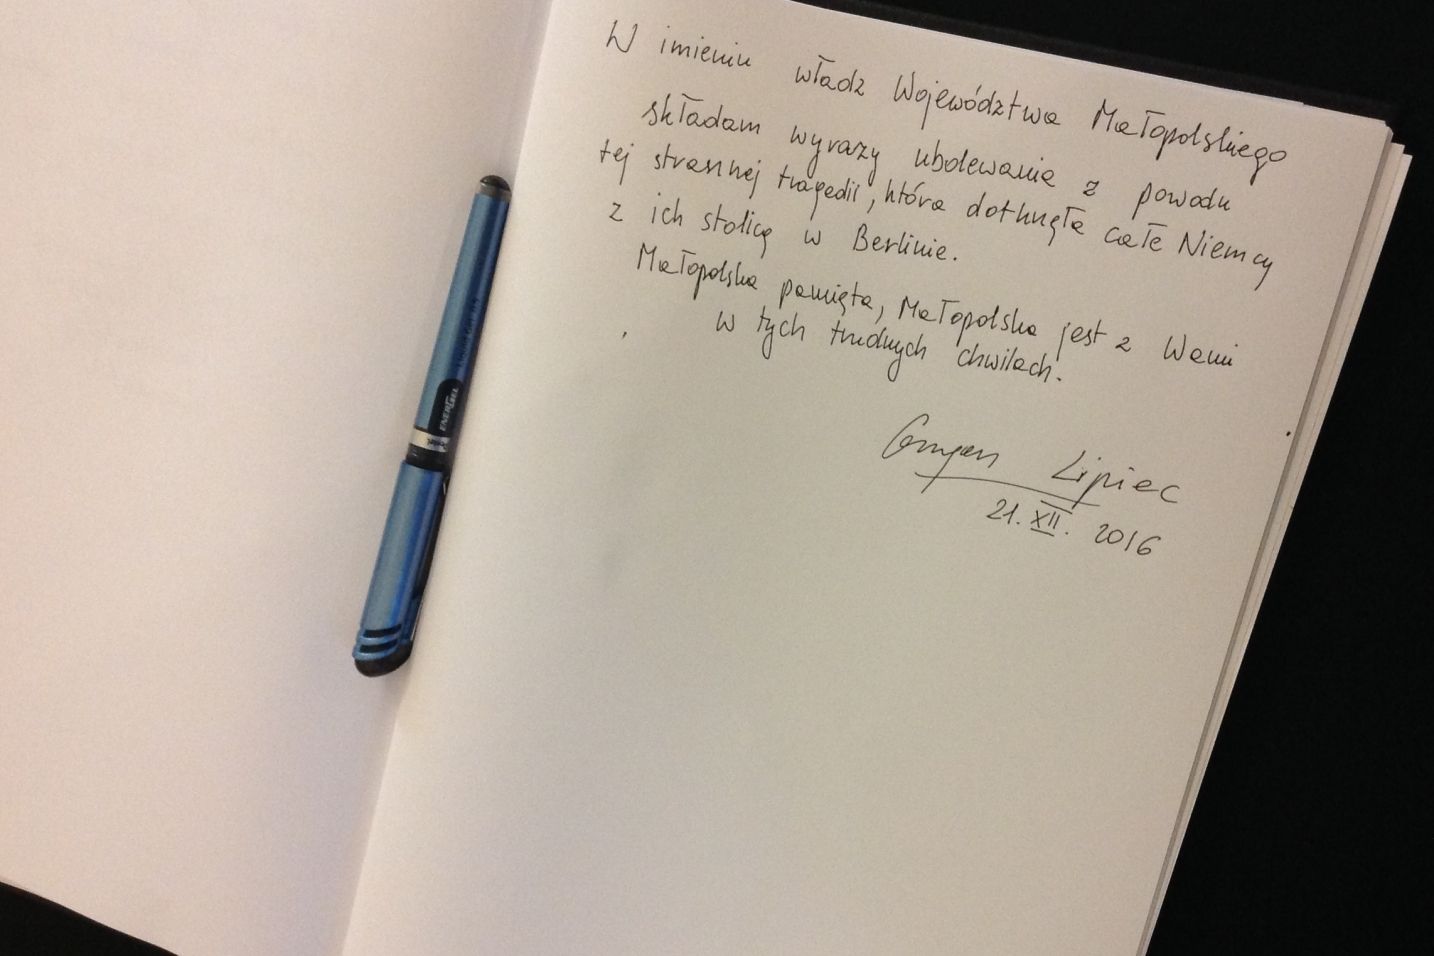 W imieniu władz Województwa Małopolskiego
składam wyrazy ubolewania z powodu
tej strasznej tragedii, która dotknęła całe Niemcy
z ich stolicą w Berlinie.
Małopolska pamięta, Małopolska jest z Wami
w tych trudnych chwilach.
Grzegorz Lipiec
21. XII. 2016
ENERGEL